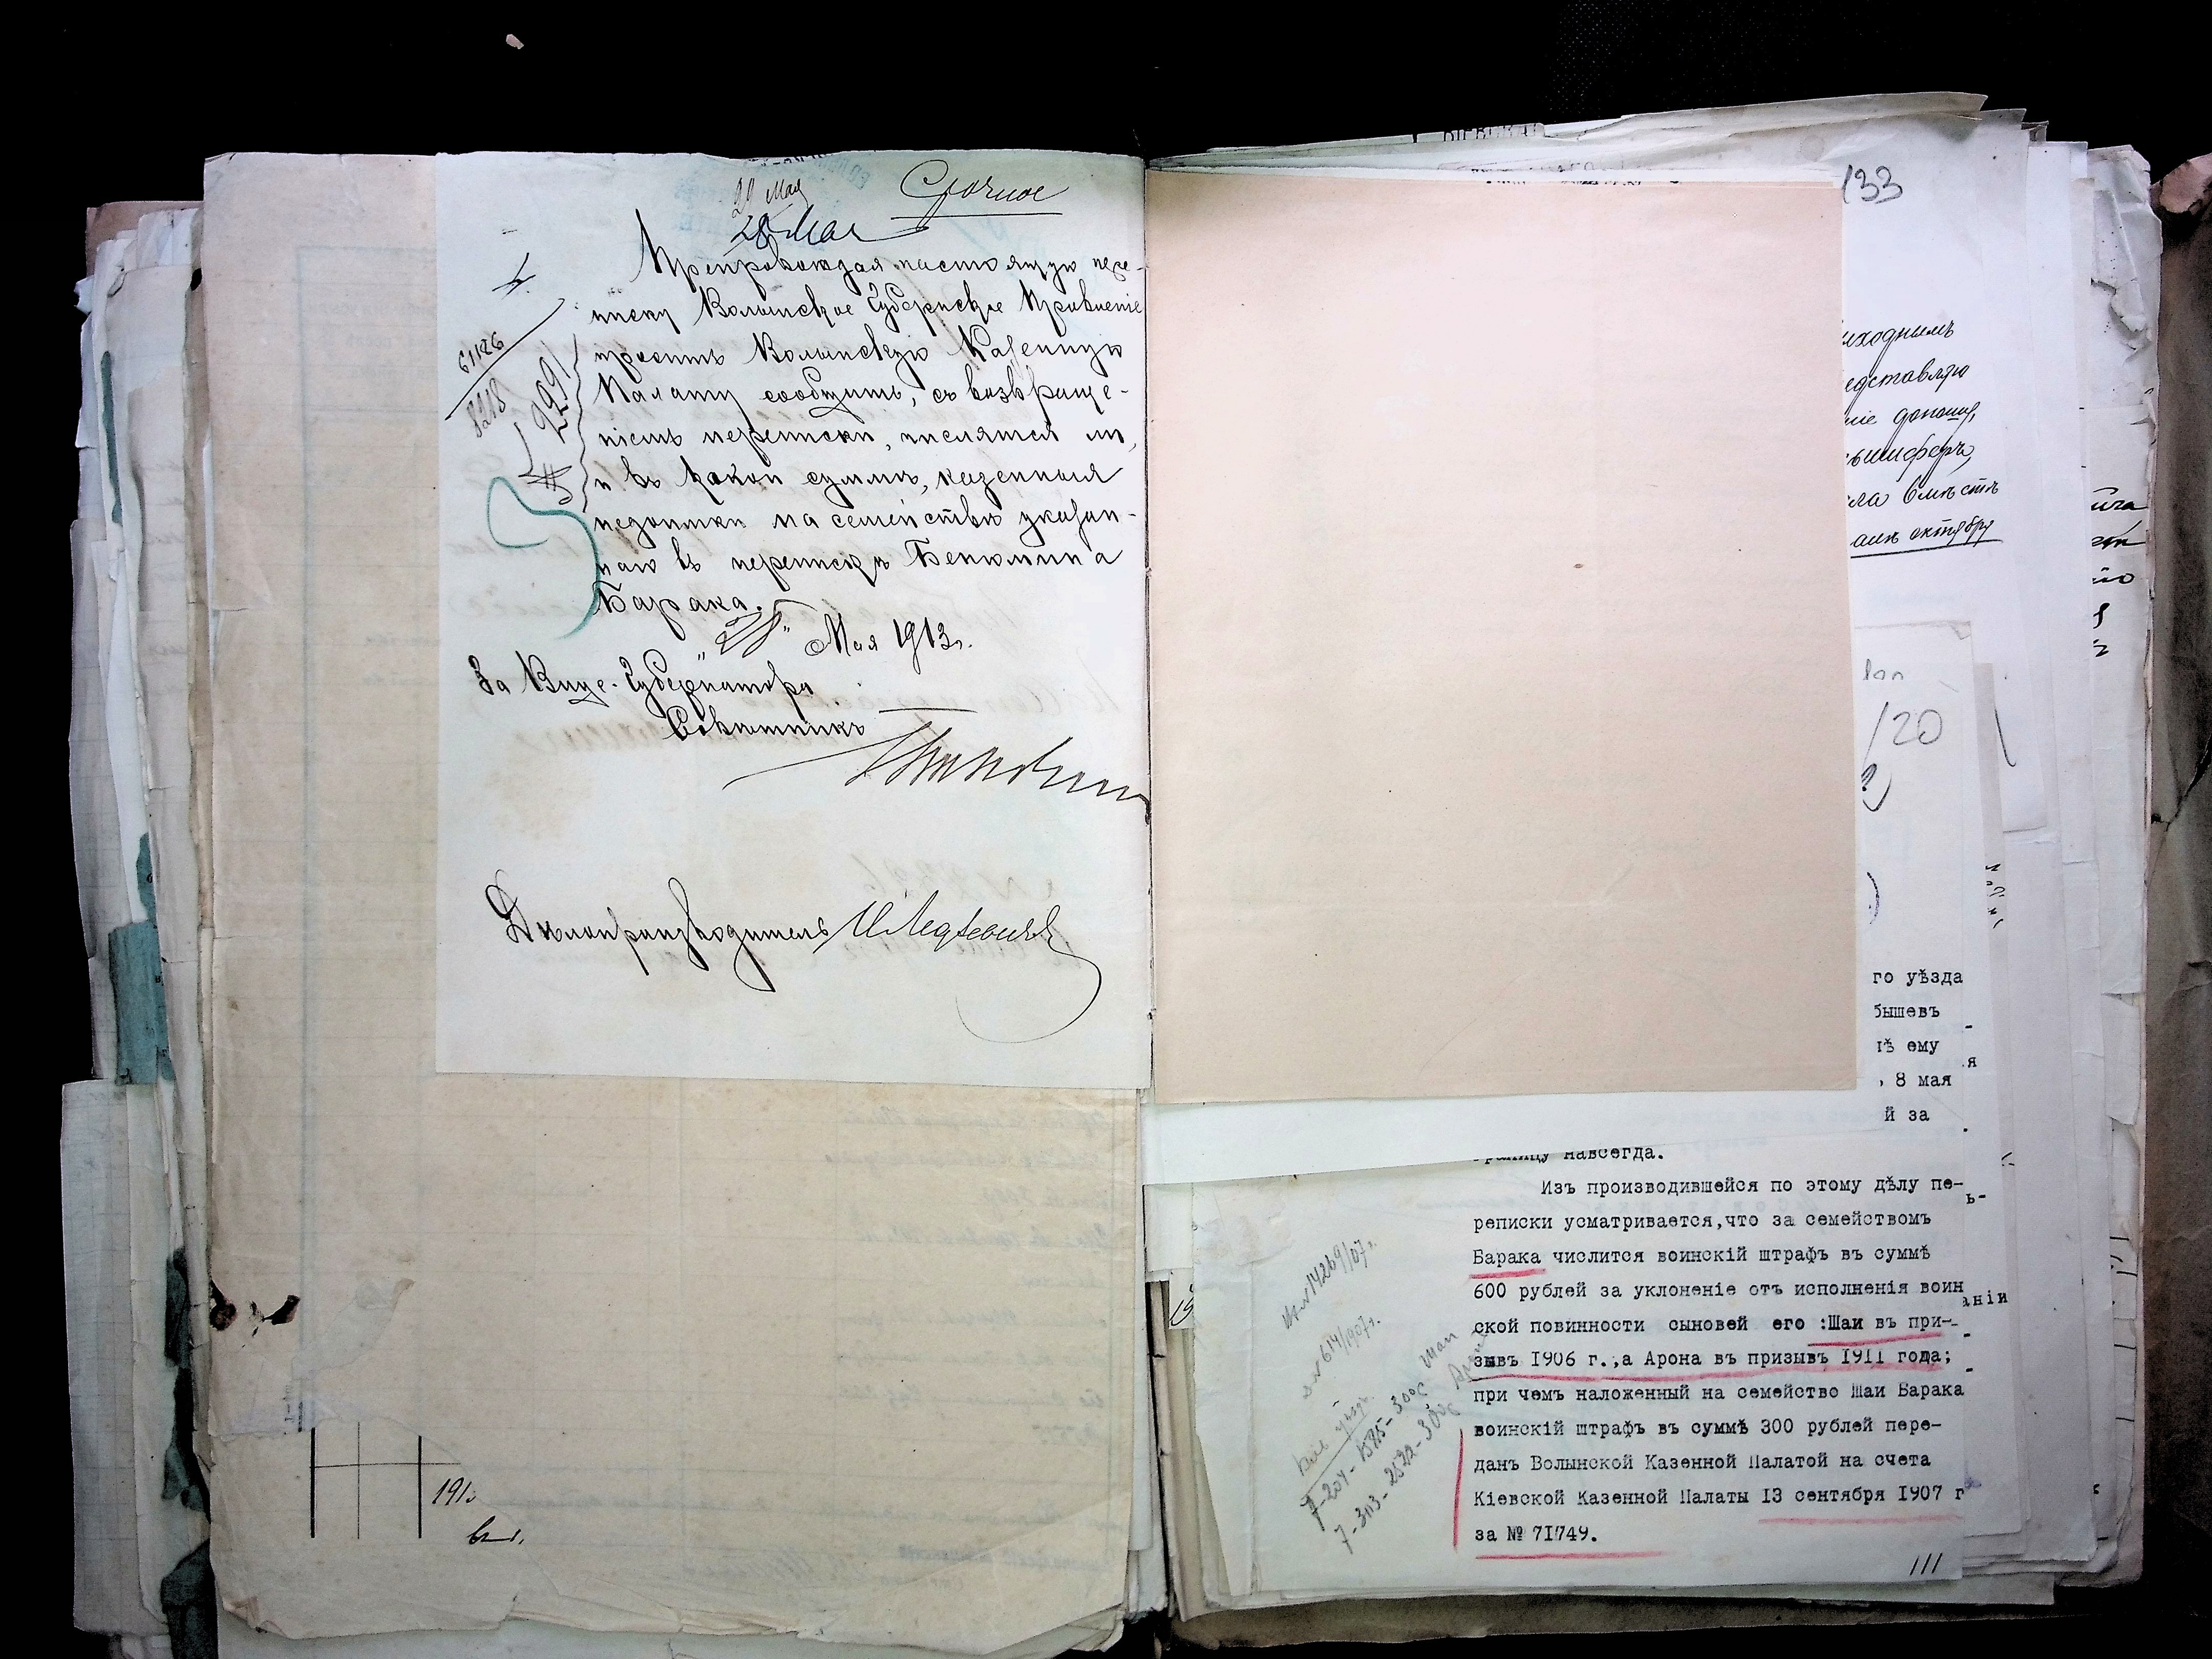 Срочное
29 Мая
28 Мая
Препровождая настоящую пере-
писку Волынское Губернское Правленіе
проситъ Волынскую Казенную
Палату сообщить, съ возвраще-
ніемъ переписки, числятся ли,
и въ какой суммѣ, казенныя
недоимки на семействѣ указан-
наго въ перепискѣ Беніомина
Барака.
"28" Мая 1913 г.
За Вице-Губернатора
Совѣтникъ
Дѣлопроизводитель
61186
8218
№ 2991
191
133
исходнымъ
едставляю
ніе
вмѣстѣ
октября
/20
го уѣзда
бышевъ
нѣ ему
, 8 мая
й за
границу навсегда.
Изъ производившейся по этому дѣлу пе-
реписки усматривается,что за семействомъ
Барака числится воинскій штрафъ въ суммѣ
600 рублей за уклоненіе отъ исполненія воин
ской повинности сыновей его :Шаи въ при-
зывъ 1906 г.,а Арона въ призывъ 1911 года;
при чемъ наложенный на семейство Шаи Барака
воинскій штрафъ въ суммѣ 300 рублей пере-
данъ Волынской Казенной Палатой на счета
Кіевской Казенной Палаты 13 сентября 1907 г
за № 71749.
14269/07 г.
614/1907 г.
7-204-1585-300 Шаи
7-303-2522-300
аніи
111